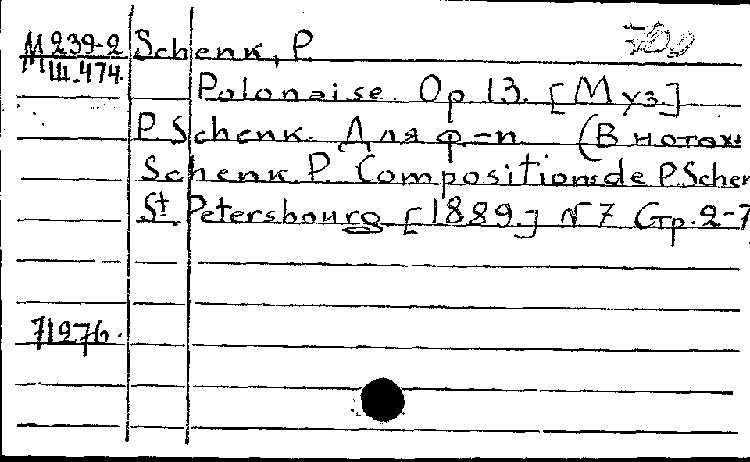 М 239-2 Schenk, P.
М Ш. 474.
Polonaise. Op. 13. [Муз.]
P. Schenk. Для ф-п. (В нотах
Schenk P. Compositions de P. Schen
St. Petersbourg [1889.] N 7 Стр. 2-7